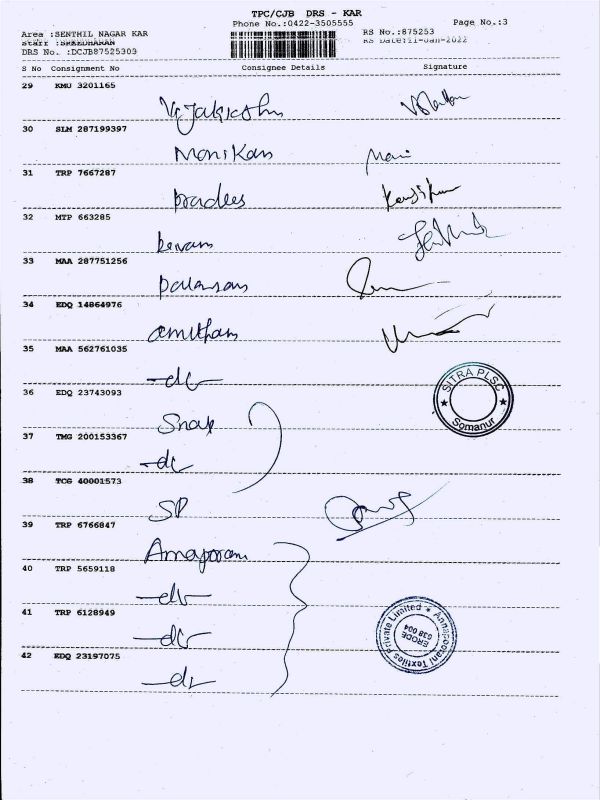 TPC/CJB DRS - KAR
Phone No.:0422-3505555
Page No.:3
Area :SENTHIL NAGAR KAR
RS No.:875253
Staff :SREEDHARAN
RS Date:11-Jan-2022
DRS No. :DCJB87525303
S No Consignment No Consignee Details Signature
29 KMU 3201165
30 SLM 287199397
Manikan Mani
31 TRP 7667287
pradees
32 MTP 663285
33 MAA 287751256
34 EDQ 14864976
35 MAA 562761035
-do-
36 EDQ 23743093
SITRA PLSC
Somanur
Snap
37 TMG 200153367
-do-
38 TCG 40001573
SP
39 TRP 6766847
40 TRP 5659118
-do-
41 TRP 6128949
Annapoorani Textiles Private Limited
ERODE
638 004
-do-
42 EDQ 23197075
-do-